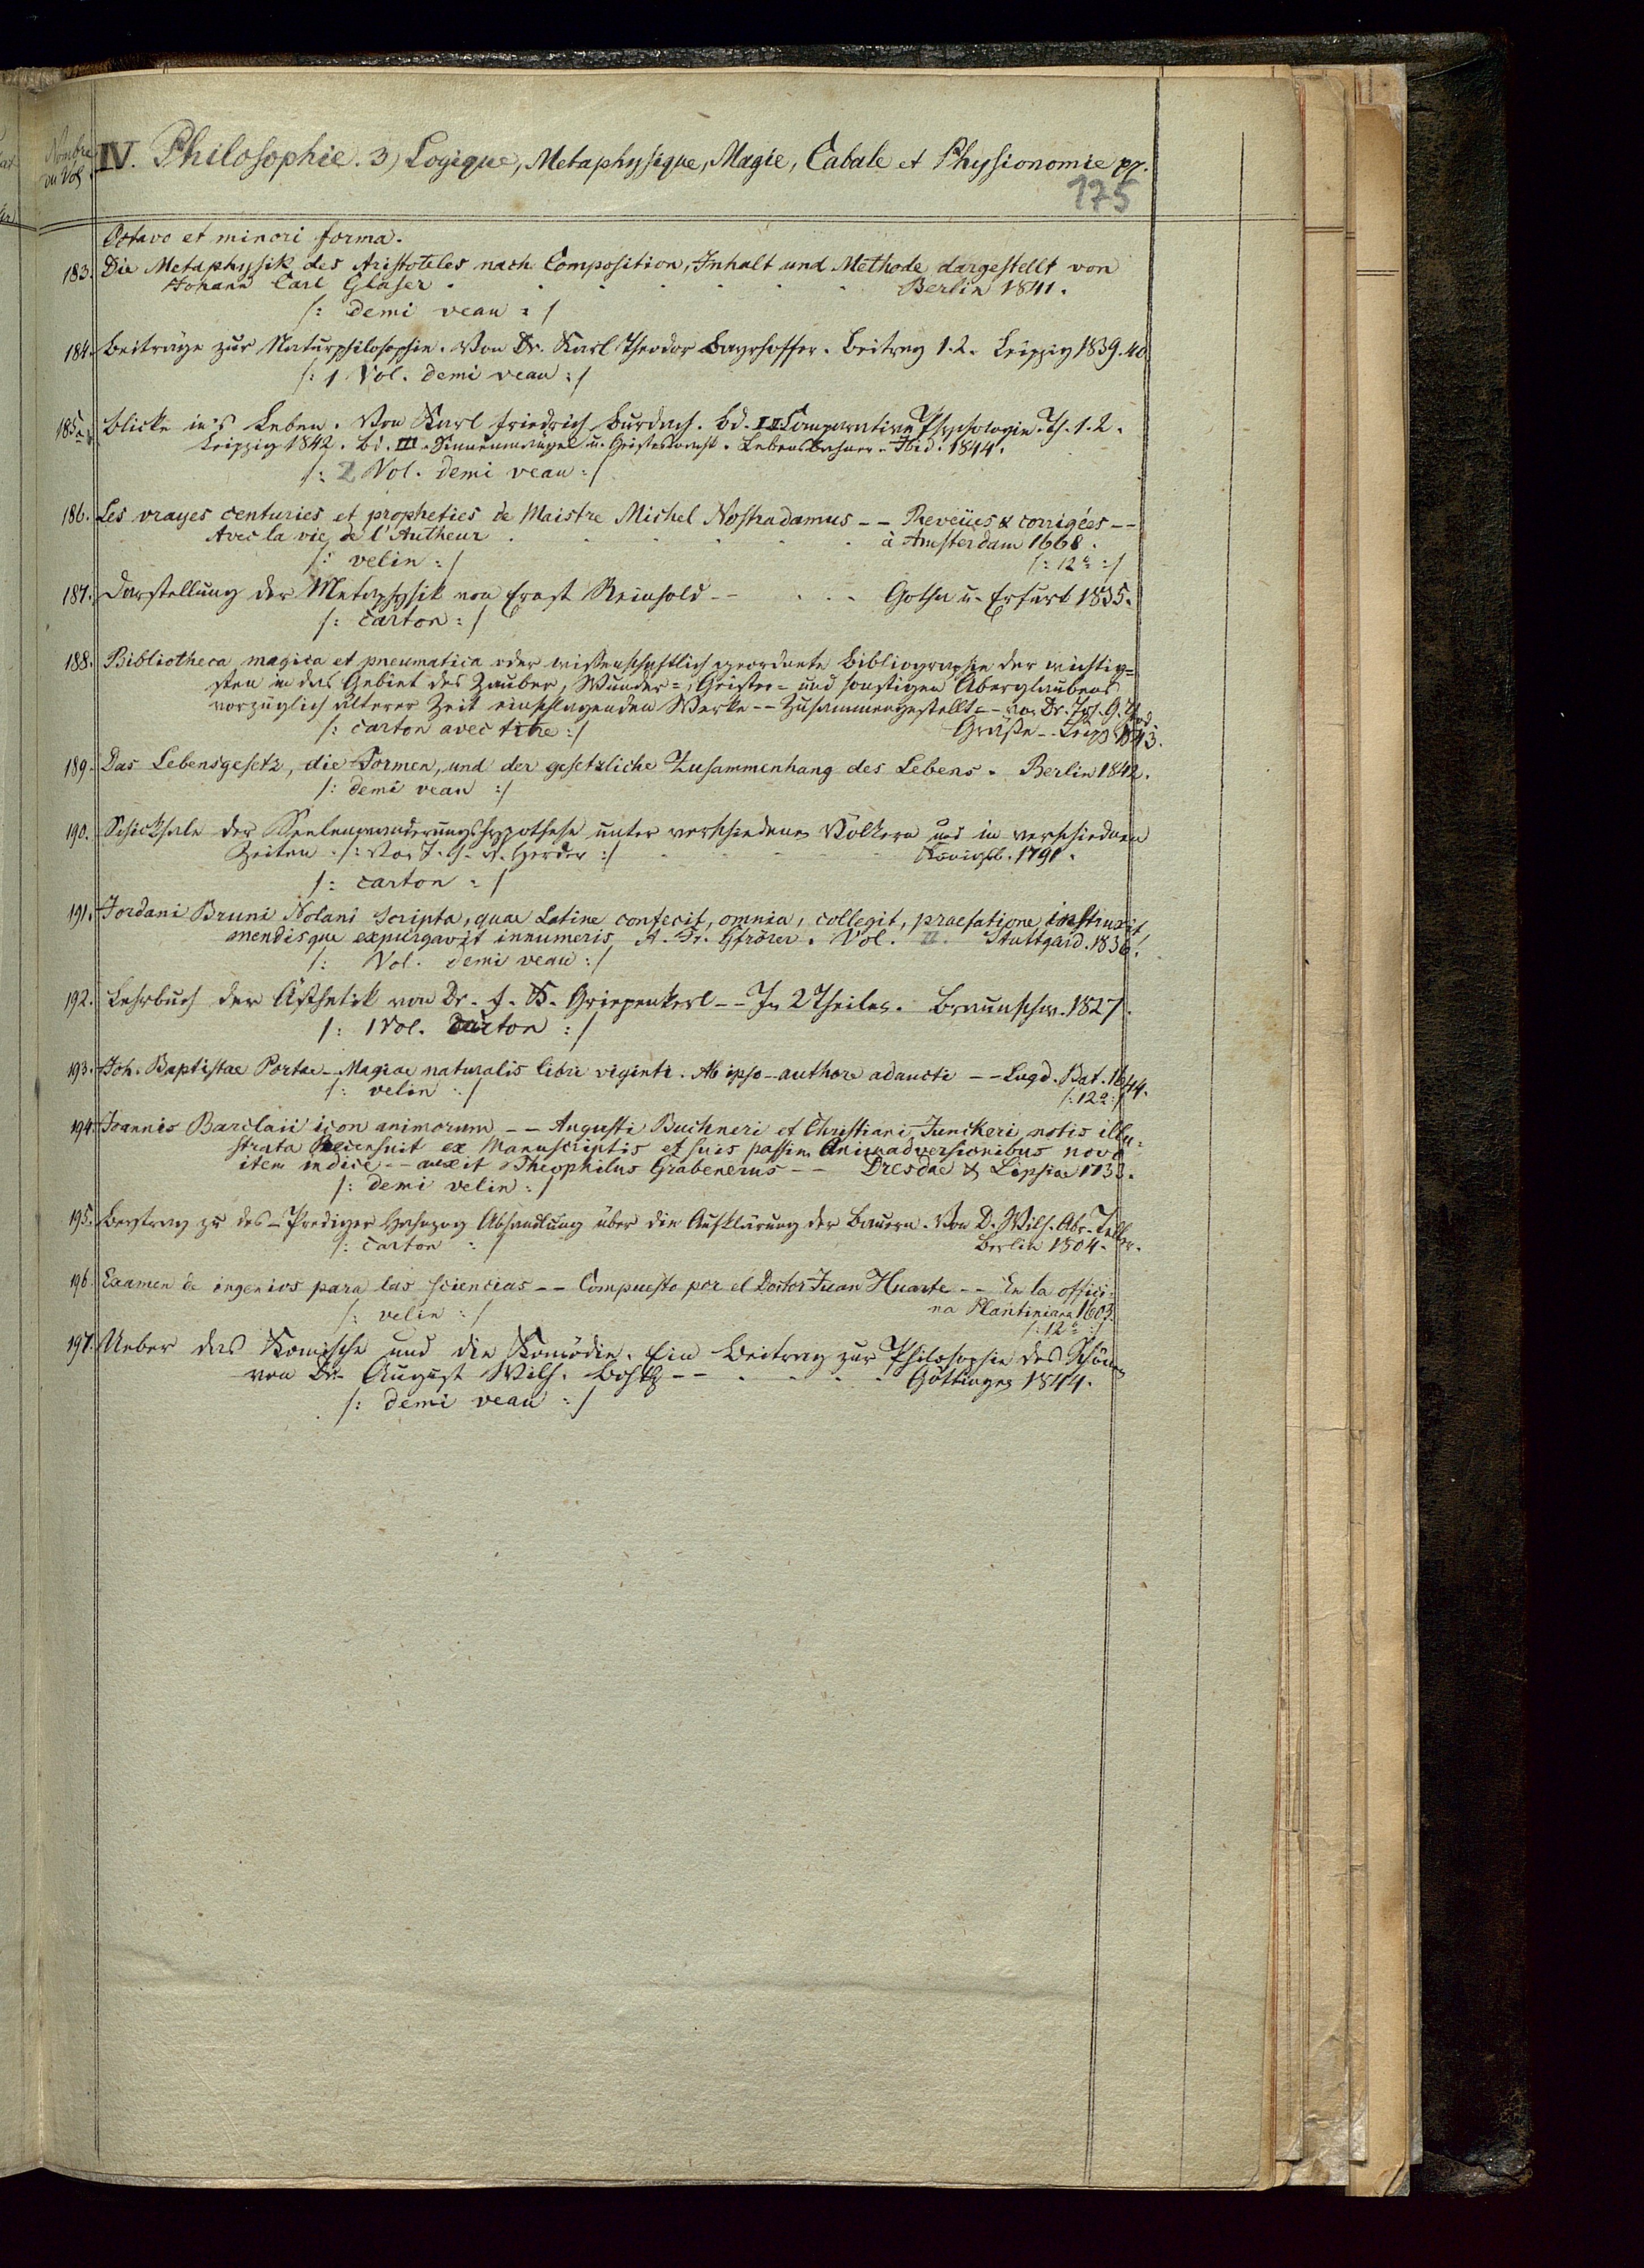 Nombre
du Vol
IV. Philosophie. 3) Logique, Metaphysique, Magie, Cabale et Physionomie pp.
175
Octavo et minori forma.
183. Die Metaphysik des Aristoteles nach Composition, Inhalt und Methode dargestellt von
Johann Carl Glaser . . . . . . . Berlin 1841.
/: demi veau :/
184. Beiträge zur Naturphilosophie. Von Dr. Karl Theodor Bayrhoffer. Beitrag 1.2. Leipzig 1839.40
/: 1 Vol. demi veau :/
185. Blicke in's Leben. Von Karl Friedrich Burdach. Bd. I. II Comparative Psychologie. Th. 1.2.
Leipzig 1842. Bd. III. Sinnenmängel u. Geistesmacht. Lebensbahnen. Ibid. 1844.
/: 2 Vol. demi veau :/
186. Les vrayes centuries et propheties de Maistre Michel Nostradamus -- Reveües & corrigées --
Avec la vie de l'Autheur . . . . . . à Amsterdam 1668.
/: velin :/ /: 12° :/
187. Darstellung der Metaphysik von Ernst Reinhold -- . . . Gotha u. Erfurt 1835.
/: carton :/
188. Bibliotheca magica et pneumatica oder wissenschaftlich geordnete Bibliographie der wichtig=
sten in das Gebiet des Zauber, Wunder=, Geister= und sonstigen Aberglaubens
vorzüglich älterer Zeit einschlagenden Werke -- Zusammengestellt -- von Dr. Joh. G. Theod.
/: carton avec titre :/ Gräße -- Leipz. 1843.
189. Das Lebensgesetz, die Formen, und der gesetzliche Zusammenhang des Lebens. Berlin 1842.
/: demi veau :/
190. Schicksale der Seelenwanderungshypothese unter verschiednen Völkern und in verschiednen
Zeiten. /: Von J. G. v. Herder :/ . . . . . Königsb. 1791.
/: carton :/
191. Jordani Bruni Nolani Scripta, quae Latine confecit, omnia, collegit, praefatione instruxit,
mendisque expurgavit innumeris A. Fr. Gfrörer. Vol. II. Stuttgard. 1836!
/: Vol. demi veau :/
192. Lehrbuch der Ästhetik von Dr. F. K. Griepenkerl -- In 2 Theilen. Braunschw. 1827.
/: 1 Vol. carton :/
193. Joh. Baptistae Portae - Magiae naturalis libri viginti. Ab ipso - authore adaucti -- Lugd. Bat. 1644.
/: velin :/ /: 12° :/
194. Joannis Barclaii icon animorum -- Augusti Buchneri et Christiani Junckeri notis illu=
strata Recensuit ex Manuscriptis et suis passim Animadversionibus novo
item indice -- auxit Theophilus Grabenerus -- Dresdae & Lipsiae 1733.
/: demi velin :/
195. Beytrag zu des - Prediger Abhandlung über die Aufklärung der Bauern. Von D. Wilh. Abr. Teller.
/: carton :/ Berlin 1804.
196. Examen de ingenios para las sciencias -- Compuesto por el Doctor Juan Huarte -- En la offici=
/: velin :/ na Plantiniana 1603.
/: 12° :/
197. Ueber das Komische und die Komödie. Ein Beitrag zur Philosophie des Schönen
von Dr. August Wilh. Bohtz -- . . . . . Göttingen 1844.
/: demi veau :/